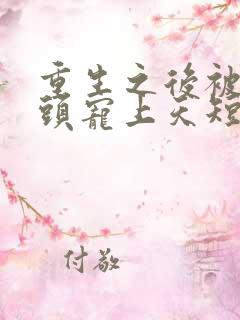 重生之後被
頭寵上天短
付敬